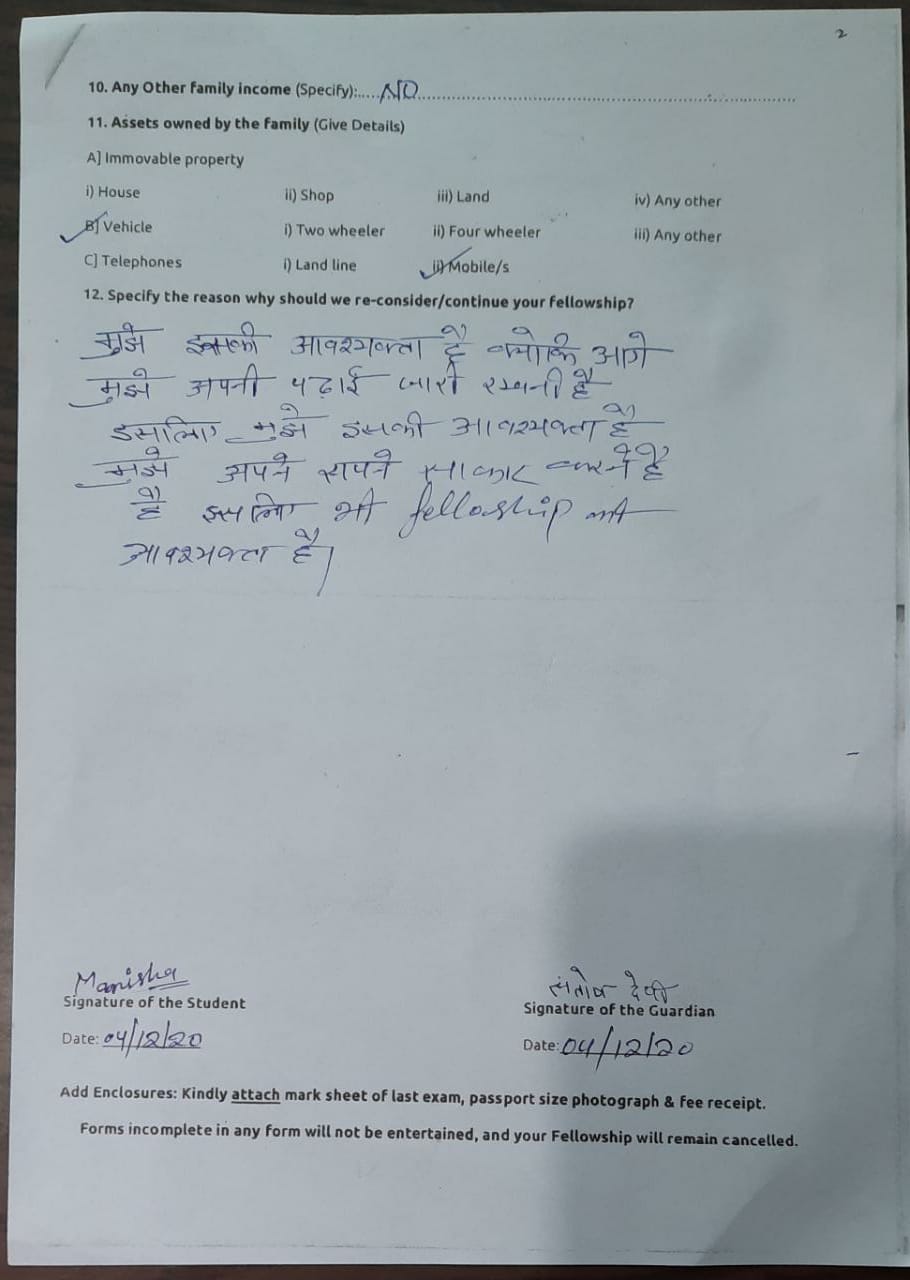 2
10. Any Other family income (Specify):.....NO..........
11. Assets owned by the family (Give Details)
A] Immovable property
i) House ii) Shop iii) Land iv) Any other
B] Vehicle i) Two wheeler ii) Four wheeler iii) Any other
C] Telephones i) Land line ii) Mobile/s
12. Specify the reason why should we re-consider/continue your fellowship?
मुझे इसकी आवश्यक्ता है क्योकि आगे
मुझे अपनी पढ़ाई जारी रखनी है
इसलिए मुझे इसकी आवश्यक्ता है
मुझे अपने सपने साकार करने है
है इसलिए भी fellowship की
आवश्यक्ता है।
Manisha संतोष देवी
Signature of the Student Signature of the Guardian
Date: 04/12/20 Date: 04/12/20
Add Enclosures: Kindly attach mark sheet of last exam, passport size photograph & fee receipt.
Forms incomplete in any form will not be entertained, and your Fellowship will remain cancelled.